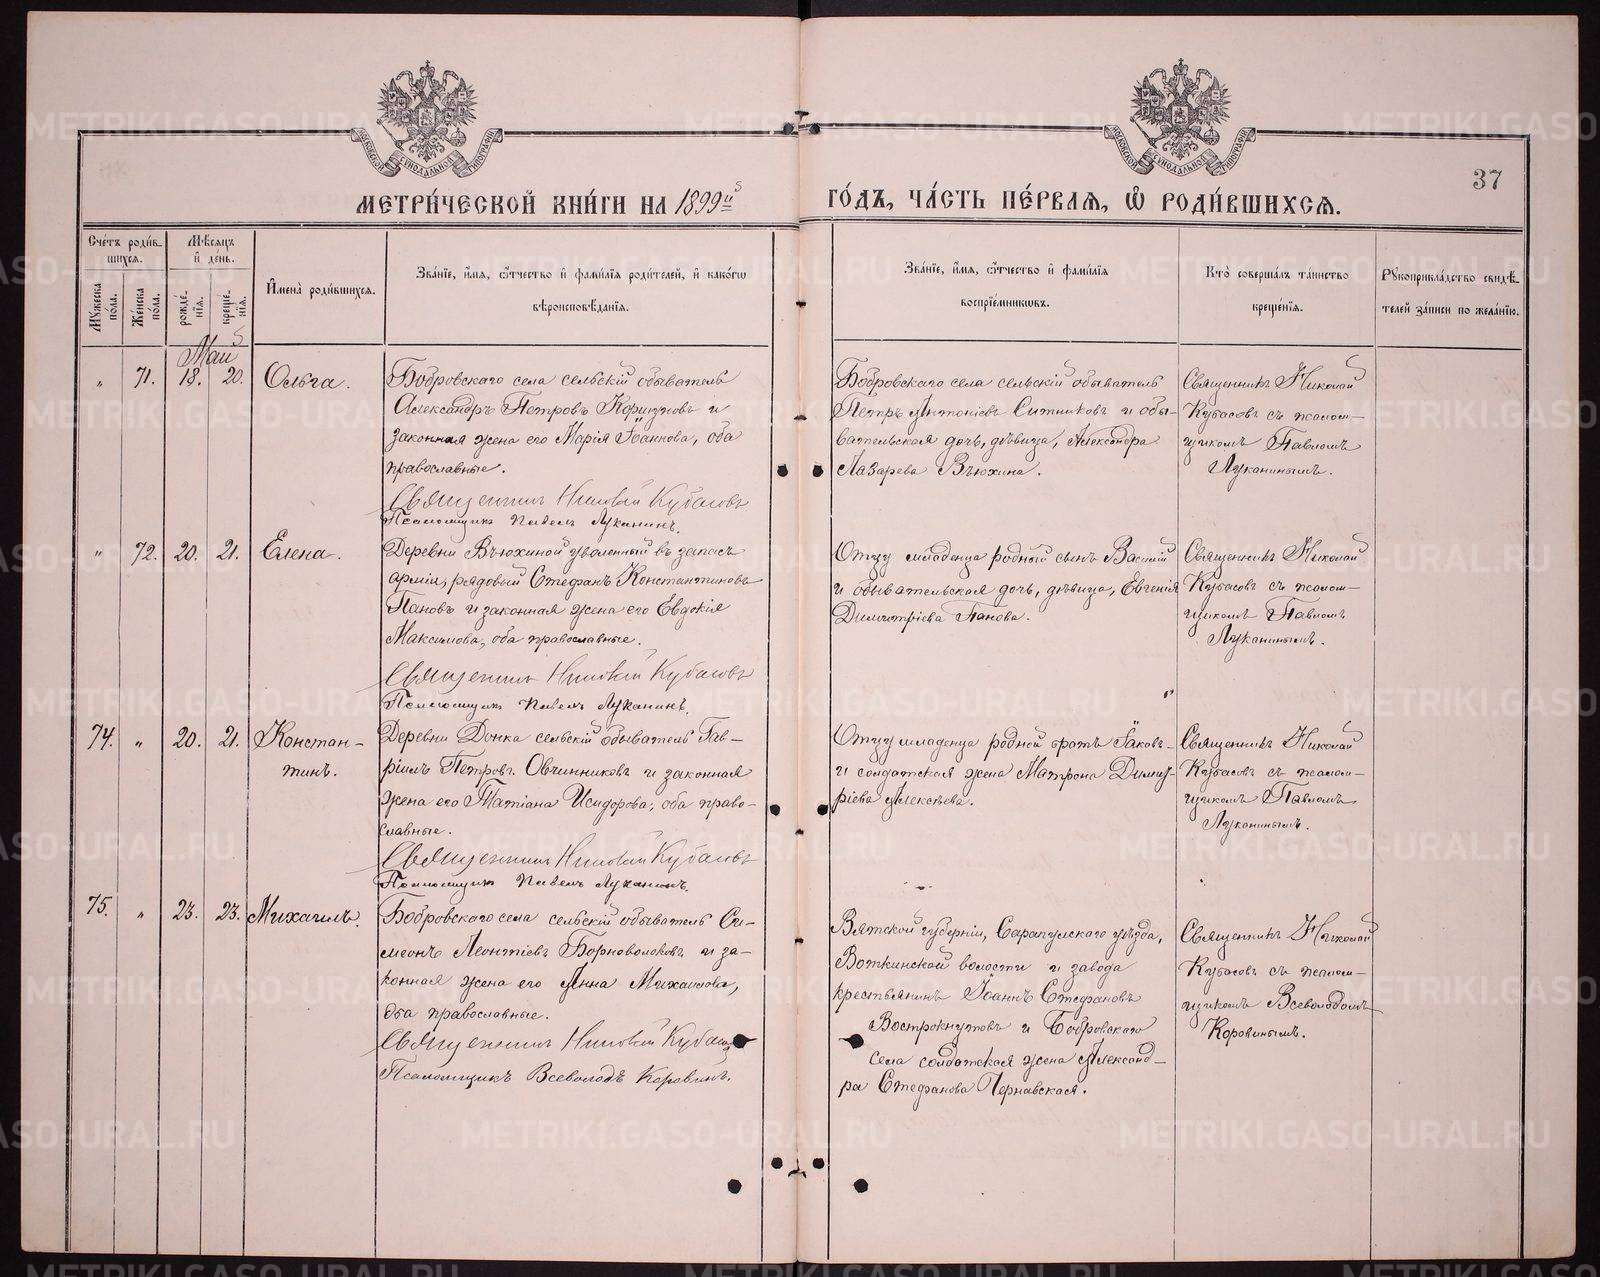 МЕТРИ́ЧЕСКОЙ КНИ́ГИ НА 1899й
ГО́ДЪ, ЧА́СТЬ ПЕ́РВАѦ, Ѡ҆ РОДИ́ВШИХСѦ.
37
Сче́тъ роди́в-
шихсѧ.
Мꙋ́жеска по́ла.
Же́нска по́ла.
Мѣ́сѧцъ
и҆ де́нь.
рожде́-
нїѧ.
креще́-
нїѧ.
И҆мена̀ роди́вшихсѧ.
Зва́нїе, и҆́мѧ, ѻ҆́тчество и҆ фами́лїѧ роди́телей, и҆ како́гѡ
вѣроисповѣ́данїѧ.
Зва́нїе, и҆́мѧ, ѻ҆́тчество и҆ фами́лїѧ
воспрїе́мникѡвъ.
Кто̀ соверша́лъ та́инство
креще́нїѧ.
Рꙋкоприкла́дство свидѣ́-
телей за́писи по жела́нїю.
Май
" 71. 18. 20. Ольга.
Бобровскаго села сельскій обыватель
Александръ Петровъ Коршуновъ и
законная жена его Марія Іоаннова, оба
православные.
Священникъ Николай Кубасовъ
Псаломщикъ Павелъ Луканинъ.
Бобровскаго села сельскій обыватель
Петръ Антоніевъ Ситниковъ и обы-
вательская дочь, дѣвица, Александра
Лазарева Вьюхина.
Священникъ Николай
Кубасовъ съ псалом-
щикомъ Павломъ
Луканинымъ.
" 72. 20. 21. Елена.
Деревни Вьюхиной уволенный въ запасъ
арміи, рядовый Стефанъ Константиновъ
Пановъ и законная жена его Евдокія
Максимова, оба православные.
Священникъ Николай Кубасовъ
Псаломщикъ Павелъ Луканинъ.
Отцу младенца родный сынъ Василій
и обывательская дочь, дѣвица, Евгенія
Димитріева Панова.
Священникъ Николай
Кубасовъ съ псалом-
щикомъ Павломъ
Луканинымъ.
74. " 20. 21. Констан-
тинъ.
Деревни Донка сельскій обыватель Гав-
ріилъ Петровъ Овчинниковъ и законная
жена его Татіана Исидорова, оба право-
славные.
Священникъ Николай Кубасовъ
Псаломщикъ Павелъ Луканинъ.
Отцу младенца родной братъ Іаковъ
и солдатская жена Матрона Димит-
ріева Алексѣева.
Священникъ Николай
Кубасовъ съ псалом-
щикомъ Павломъ
Луканинымъ.
75. " 23. 23. Михаилъ.
Бобровскаго села сельскій обыватель Си-
меонъ Леонтіевъ Борноволоковъ и за-
конная жена его Анна Михаилова,
оба православные.
Священникъ Николай Кубасовъ
Псаломщикъ Всеволодъ Коровинъ.
Вятской губерніи, Сарапулскаго уѣзда,
Воткинской волости и завода
крестьянинъ Іоаннъ Стефановъ
Вострокнутовъ и Бобровскаго
села солдатская жена Александ-
ра Стефанова Чернавская.
Священникъ Николай
Кубасовъ съ псалом-
щикомъ Всеволодомъ
Коровинымъ.
METRIKI.GASO-URAL.RU